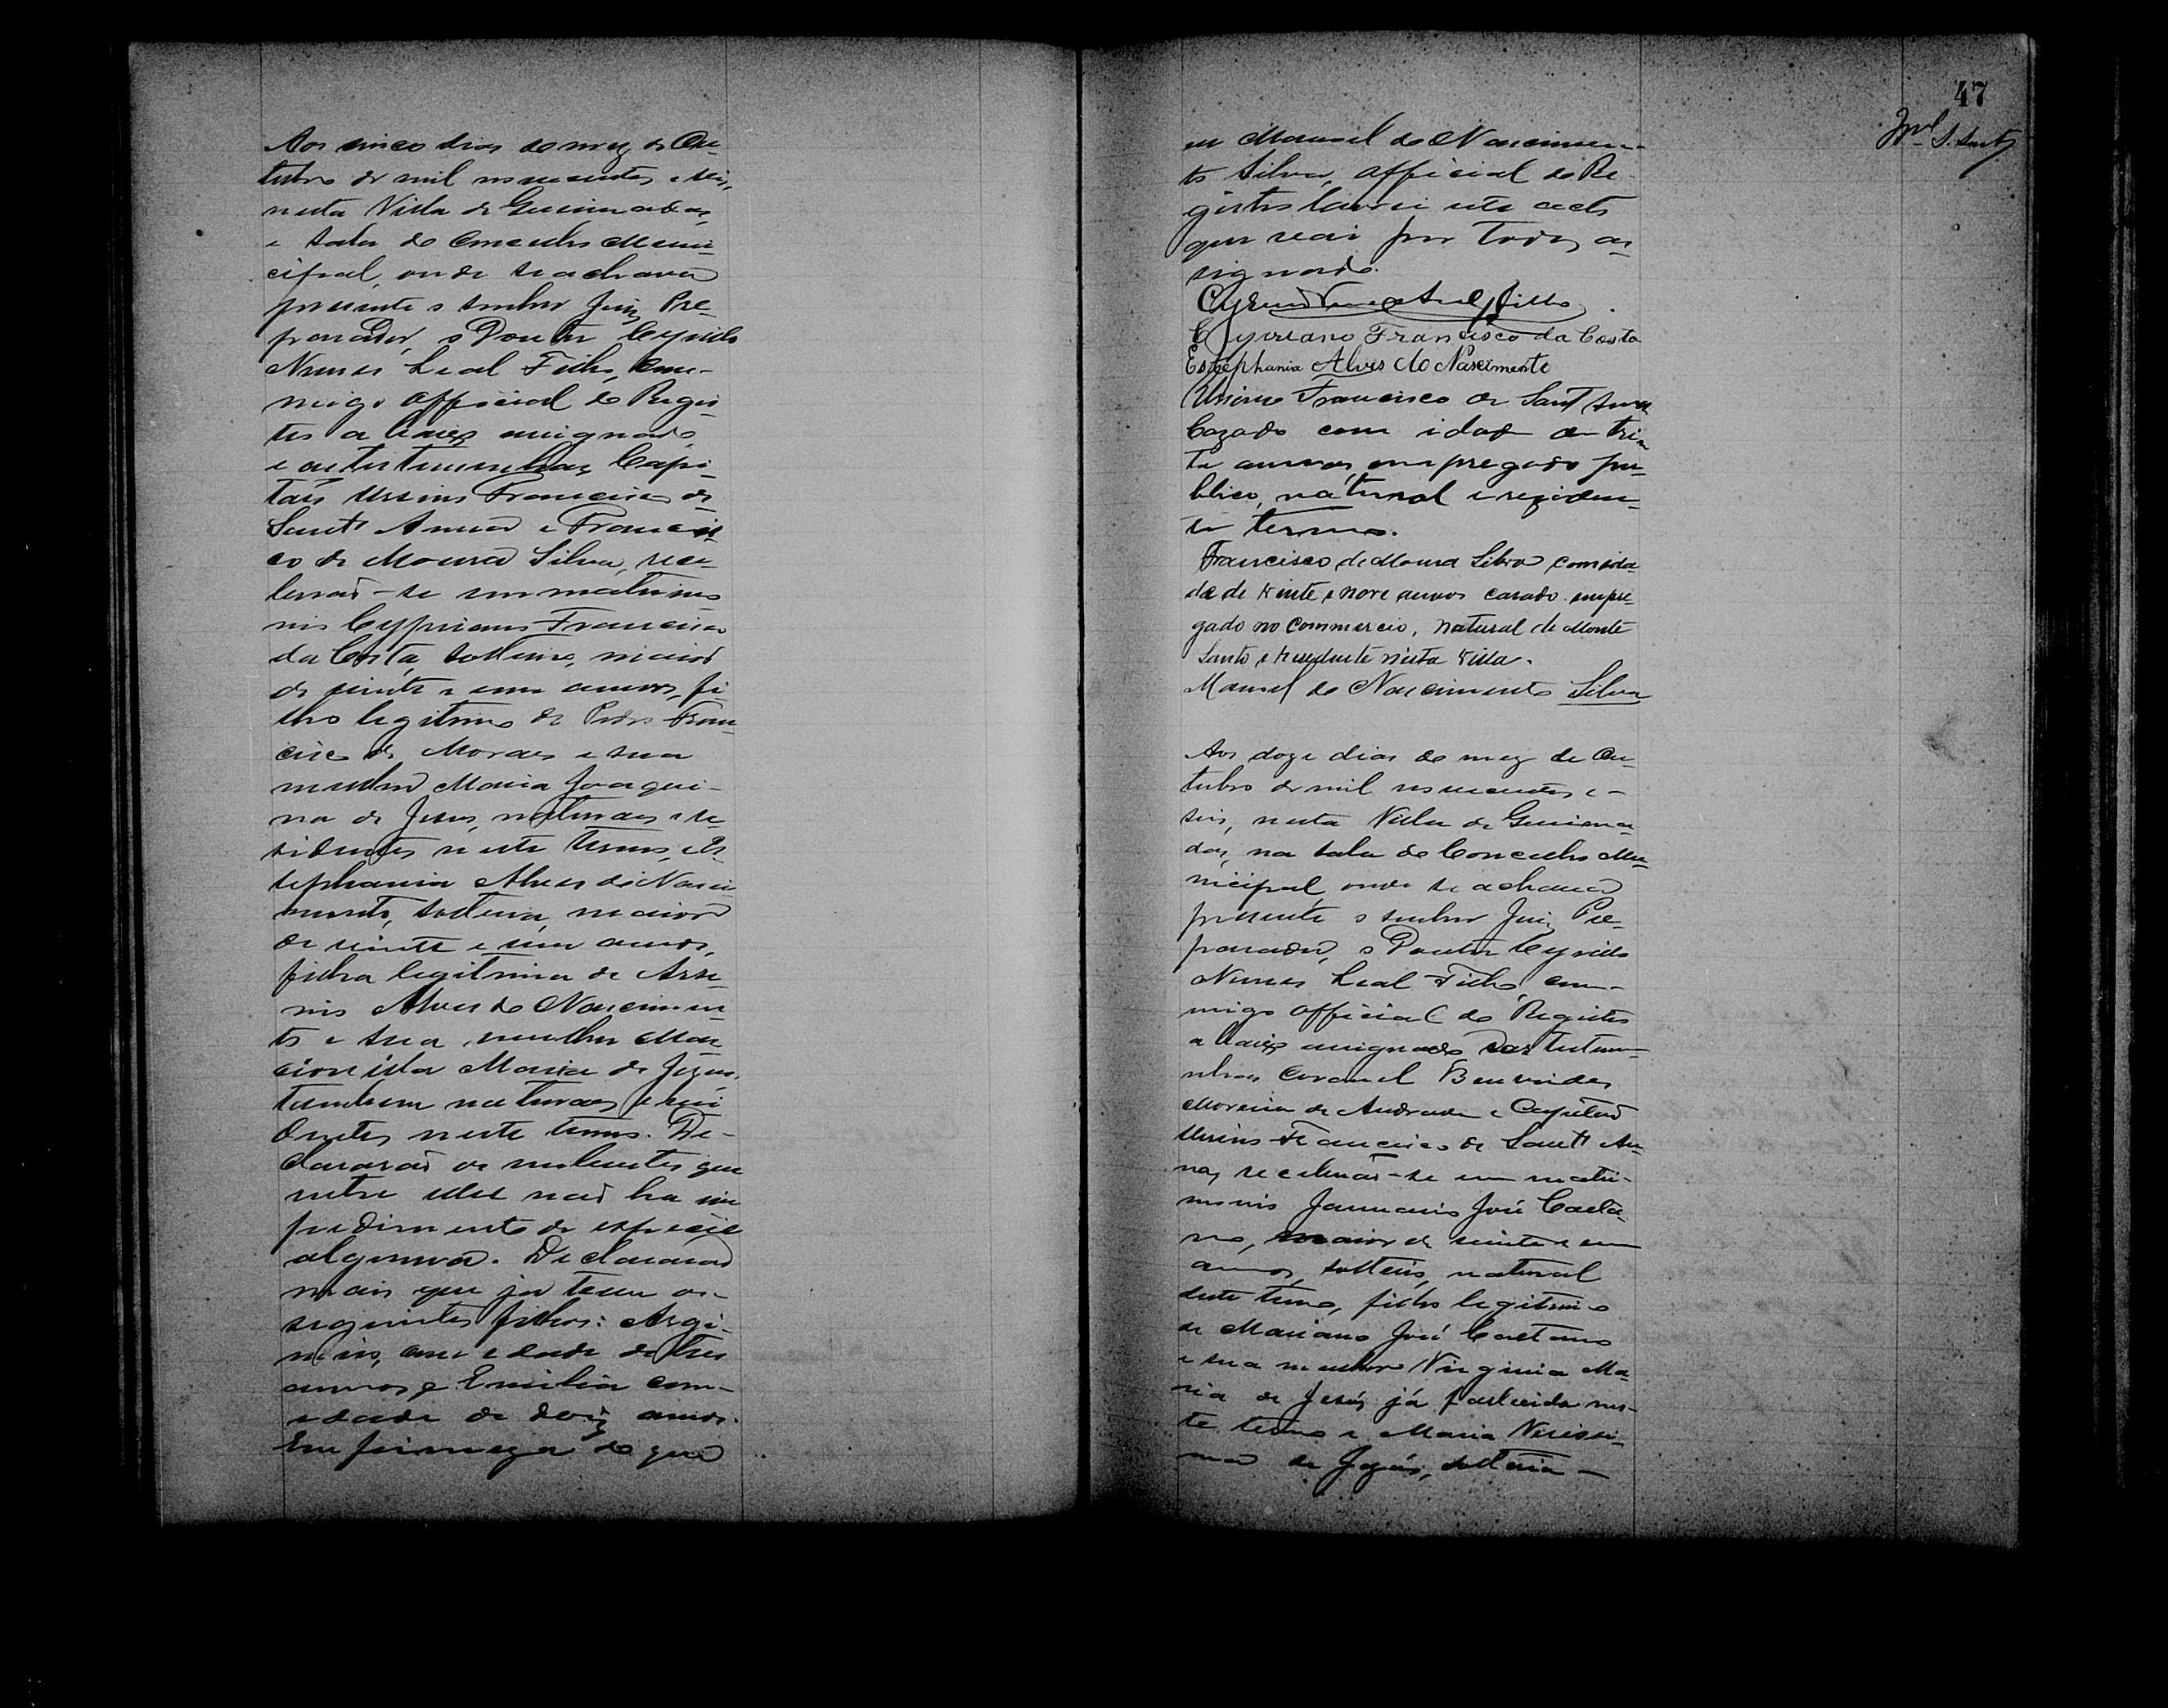 Aos cinco dias do mez de Ou-
tubro de mil novecentos e seis,
nesta Villa de Queimadas,
e sala do Conselho Muni-
cipal, onde se achava
presente o senhor Juiz Pre-
parador, o Doutor Cyrillo
Nunes Leal Filho, com-
migo Official do Regis-
tro abaixo assignado,
e as testemunhas Capi-
tão Ursino Francisco de
Sant' Anna e Francis-
co de Moura Silva, rece-
berão-se em matrimo-
nio Cypriano Francisco
da Costa, solteiro, maior
de vinte e um annos, fi-
lho legitimo de Pedro Fran-
cisco de Moraes e sua
mulher Maria Joaqui-
na de Jesus, naturaes e re-
sidentes neste termo, e Es-
tephania Alves do Nasci-
mento, solteira, maior
de vinte e um annos,
filha legitima de Arse-
nio Alves do Nascimen-
to e sua mulher Mar-
cionilla Maria de Jezus,
tambem naturaes e resi-
dentes neste termo. De-
clararão os nubentes que
entre elles não ha im-
pedimento de especie
alguma. Declararão
mais que já teem os
seguintes filhos: Argi-
miro, com edade de tres
annos e Emilia com
edade de dois annos.
Em firmeza do que
47
eu Manoel do Nascimen-
to Silva, official do Re-
gistro lavrei este acto
que vai por todos as-
signado.
Cyrillo Nunes Leal Filho
Cypriano Francisco da Costa
Estephania Alves do Nascimento
Ursino Francisco de Sant Anna
Cazado com idade de trin
ta annos, empregado pu-
blico, natural e residen-
te termo.
Francisco de Moura Silva com ida-
de de vinte e nove annos casado empre-
gado no Commercio, natural de Monte
Santo e residente nesta villa.
Manoel do Nascimento Silva
Aos doze dias do mez de Ou-
tubro de mil novecentos e
seis, nesta Villa de Queima-
das, na sala do Concelho Mu-
nicipal, onde se achava
presente o senhor Juiz Pre-
parador, o Doutor Cyrillo
Nunes Leal Filho, com-
migo official do Registro
abaixo assignado das testemu-
nhas Coronel Benvindo
Moreira de Andrade e Capitão
Ursino Francisco de Sant' An-
na, receberão-se em matri-
monio Januario José Caeta-
no, maior de vinte e um
annos, solteiro, natural
deste termo, filho legitimo
de Mariano José Caetano
e sua mulher Virginia Ma-
ria de Jesús já fallecida nes-
te termo e Maria Verissi-
ma de Jezús, solteira